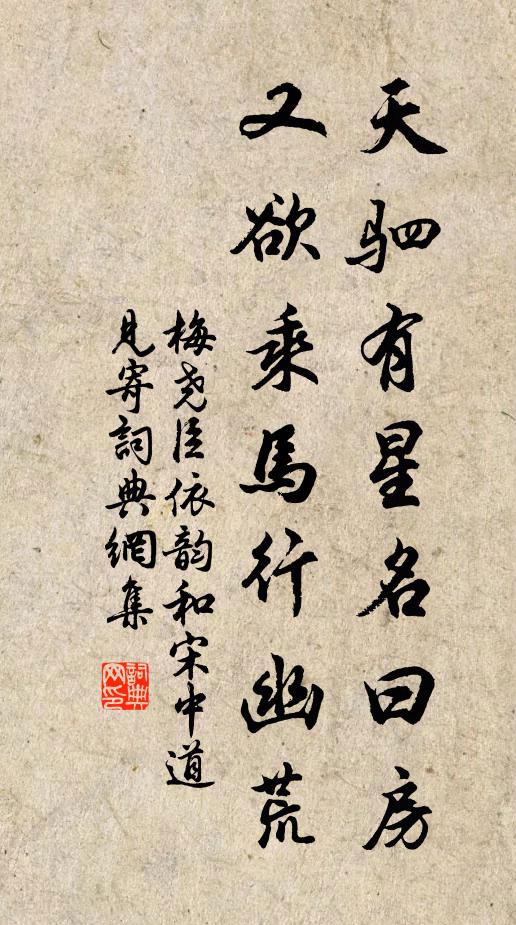 天駟有星名曰房
又欲乘馬行幽荒
梅尧臣依韵和宋中道
見寄詞典網集
詞典網印